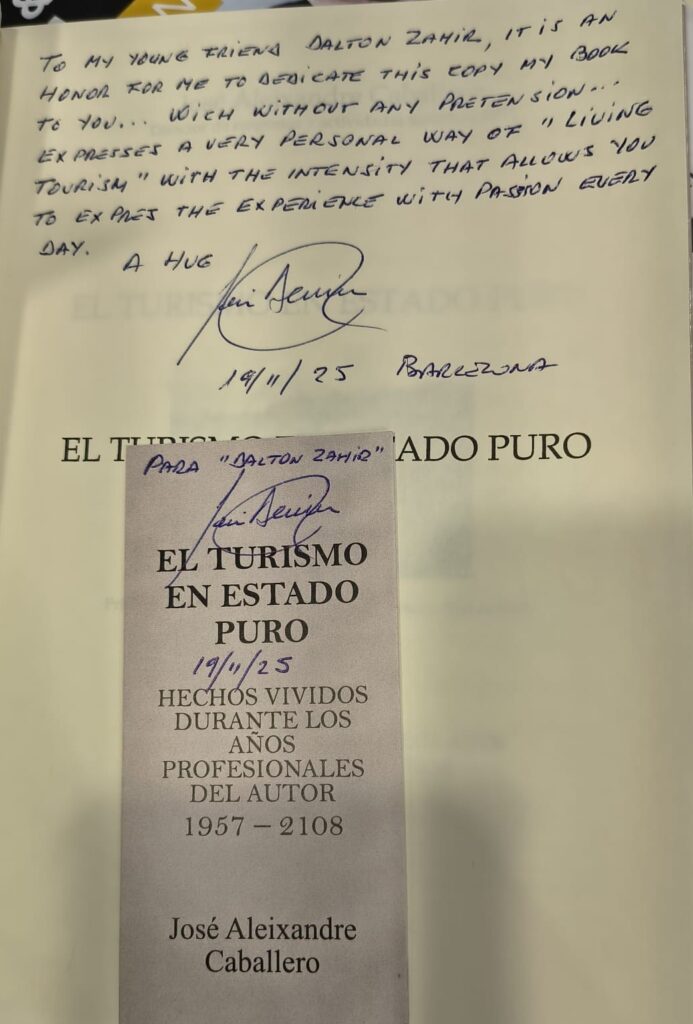 TO MY YOUNG FRIEND DALTON ZAHIR, IT IS AN
HONOR FOR ME TO DEDICATE THIS COPY MY BOOK
TO YOU... WICH WITHOUT ANY PRETENSION...
EXPRESSES A VERY PERSONAL WAY OF "LIVING
TOURISM" WITH THE INTENSITY THAT ALLOWS YOU
TO EXPRES THE EXPERIENCE WITH PASSION EVERY
DAY. A HUG
19/11/25 BARCELONA
EL TURISMO EN ESTADO PURO
PARA "DALTON ZAHIR"
EL TURISMO
EN ESTADO
PURO
19/11/25
HECHOS VIVIDOS
DURANTE LOS
AÑOS
PROFESIONALES
DEL AUTOR
1957 – 2108
José Aleixandre
Caballero